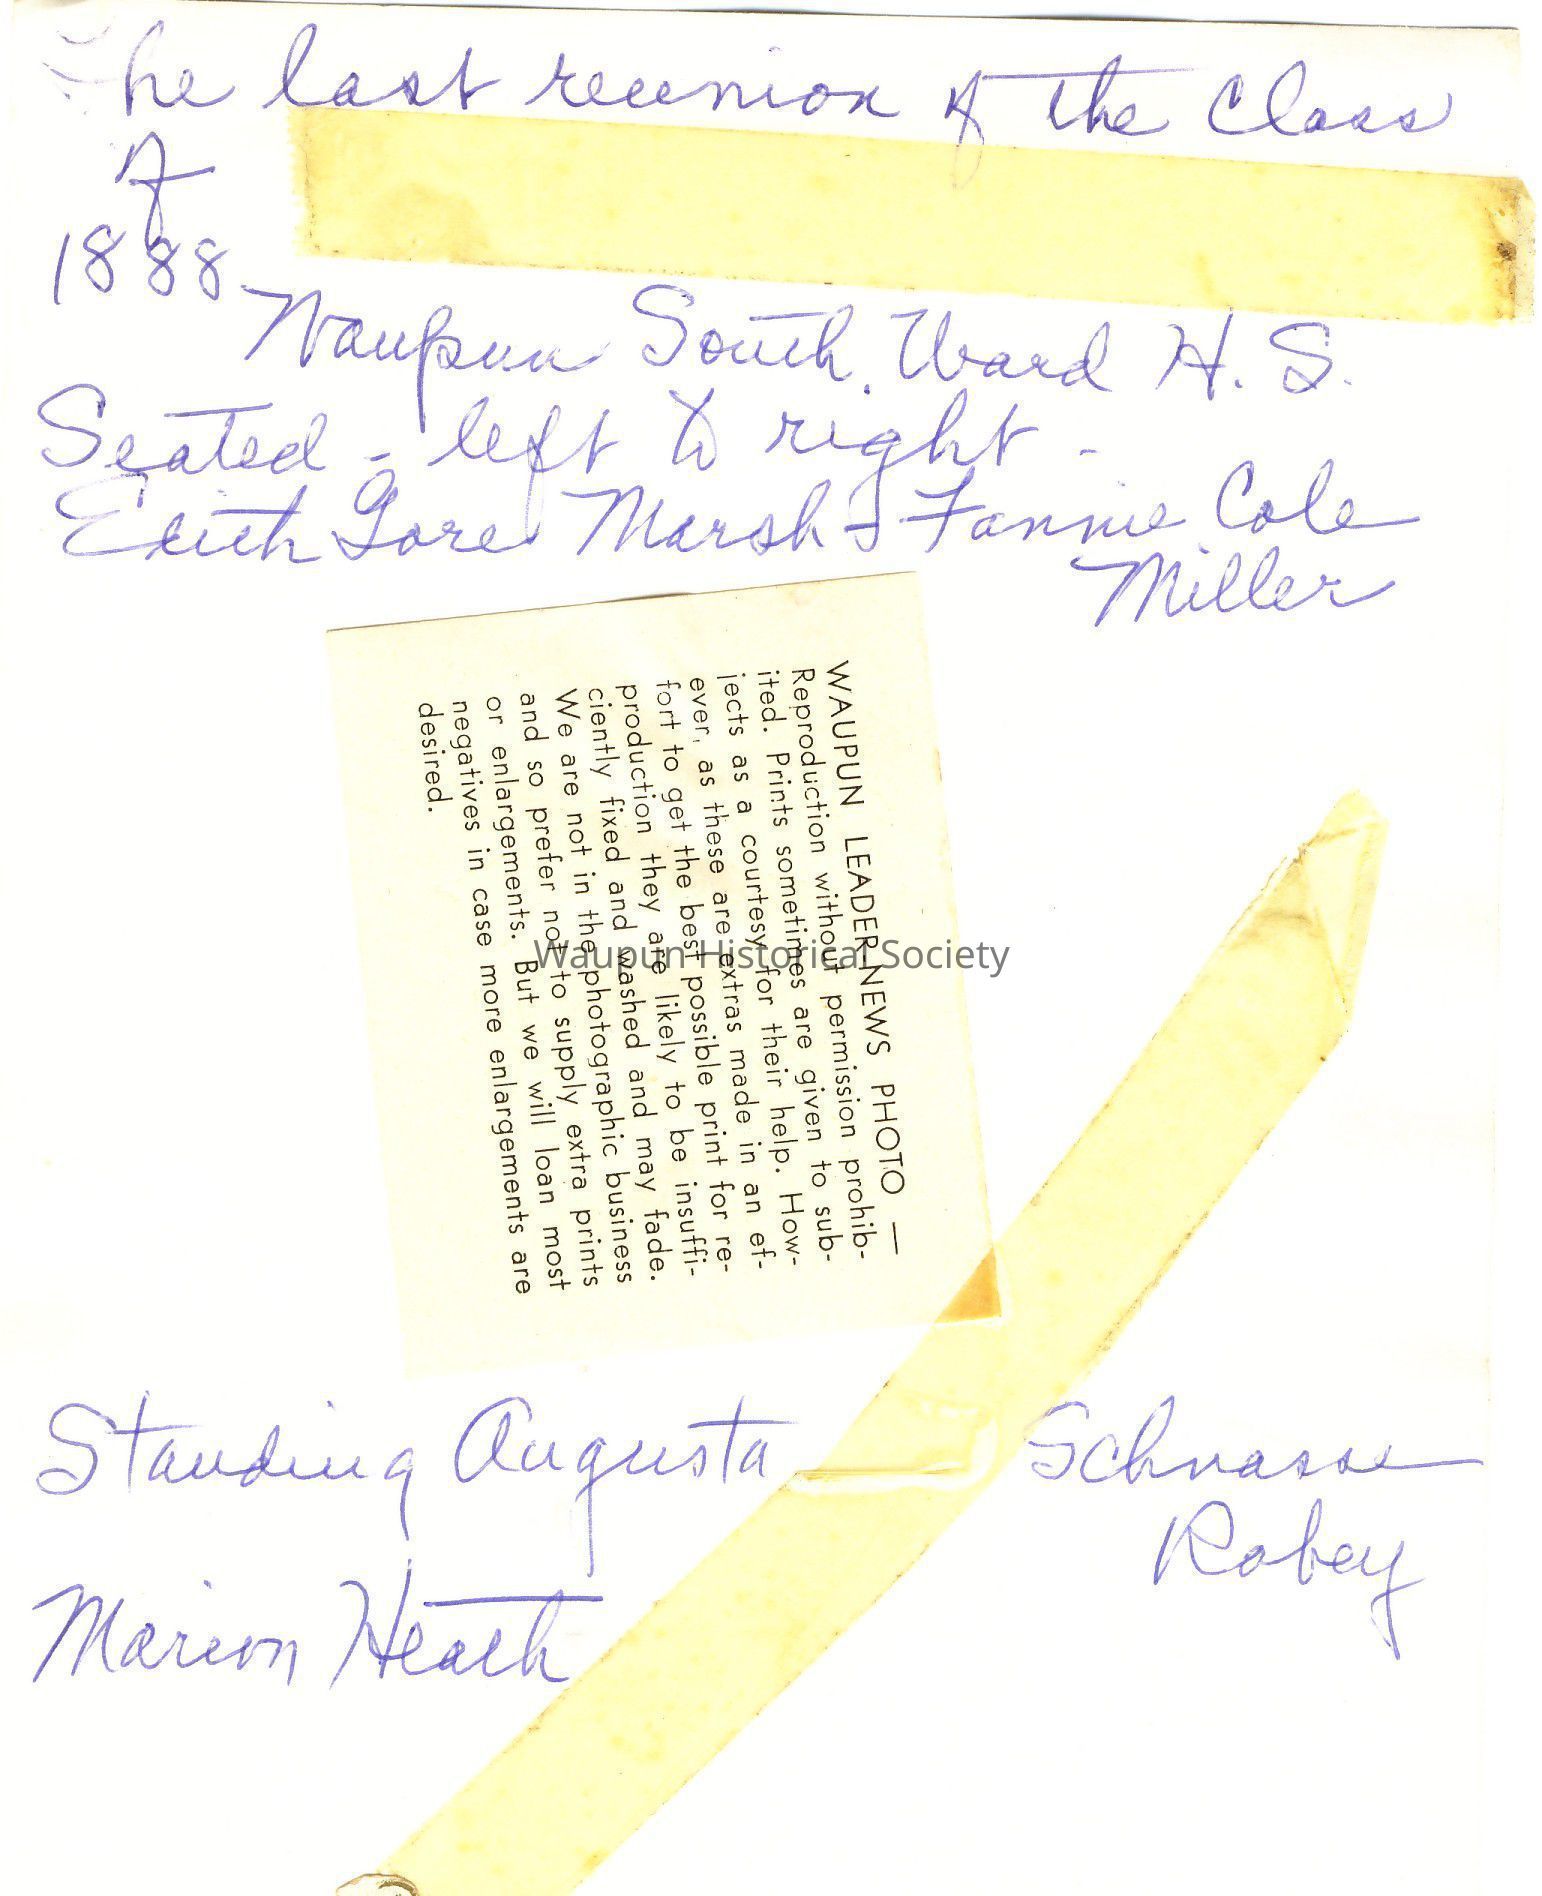 The last reunion of the Class
of
1888
Waupun South Ward H. S.
Seated - left to right -
Edith Gore Marsh - Fannie Cole
Miller
WAUPUN LEADER-NEWS PHOTO —
Reproduction without permission prohib-
ited. Prints sometimes are given to sub-
jects as a courtesy for their help. How-
ever, as these are extras made in an ef-
fort to get the best possible print for re-
production they are likely to be insuffi-
ciently fixed and washed and may fade.
We are not in the photographic business
and so prefer not to supply extra prints
or enlargements. But we will loan most
negatives in case more enlargements are
desired.
Waupun Historical Society
Standing Augusta Schnasse
Robey
Marion Heath